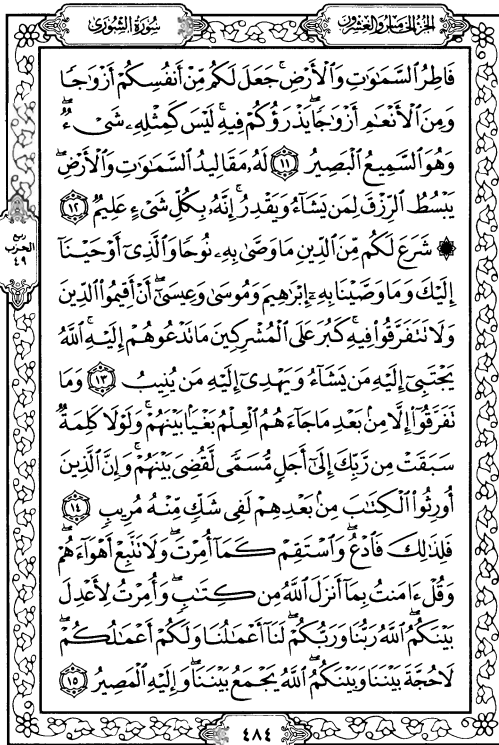 سُورَةُ الشُّورَىٰ
الجزء الخامس والعشرون
فَاطِرُ السَّمَٰوَٰتِ وَالْأَرْضِ ۚ جَعَلَ لَكُم مِّنْ أَنفُسِكُمْ أَزْوَٰجًا
وَمِنَ الْأَنْعَٰمِ أَزْوَٰجًا ۖ يَذْرَؤُكُمْ فِيهِ ۚ لَيْسَ كَمِثْلِهِۦ شَىْءٌ ۖ
وَهُوَ السَّمِيعُ الْبَصِيرُ ١١ لَهُۥ مَقَالِيدُ السَّمَٰوَٰتِ وَالْأَرْضِ ۖ
يَبْسُطُ الرِّزْقَ لِمَن يَشَآءُ وَيَقْدِرُ ۚ إِنَّهُۥ بِكُلِّ شَىْءٍ عَلِيمٌ ١٢
۞ شَرَعَ لَكُم مِّنَ الدِّينِ مَا وَصَّىٰ بِهِۦ نُوحًا وَالَّذِىٓ أَوْحَيْنَآ
إِلَيْكَ وَمَا وَصَّيْنَا بِهِۦٓ إِبْرَٰهِيمَ وَمُوسَىٰ وَعِيسَىٰٓ ۖ أَنْ أَقِيمُوا۟ الدِّينَ
وَلَا تَتَفَرَّقُوا۟ فِيهِ ۚ كَبُرَ عَلَى الْمُشْرِكِينَ مَا تَدْعُوهُمْ إِلَيْهِ ۚ اللَّهُ
يَجْتَبِىٓ إِلَيْهِ مَن يَشَآءُ وَيَهْدِىٓ إِلَيْهِ مَن يُنِيبُ ١٣ وَمَا
تَفَرَّقُوٓا۟ إِلَّا مِنۢ بَعْدِ مَا جَآءَهُمُ الْعِلْمُ بَغْيًۢا بَيْنَهُمْ ۚ وَلَوْلَا كَلِمَةٌ
سَبَقَتْ مِن رَّبِّكَ إِلَىٰٓ أَجَلٍ مُّسَمًّى لَّقُضِىَ بَيْنَهُمْ ۚ وَإِنَّ الَّذِينَ
أُورِثُوا۟ الْكِتَٰبَ مِنۢ بَعْدِهِمْ لَفِى شَكٍّ مِّنْهُ مُرِيبٍ ١٤
فَلِذَٰلِكَ فَادْعُ ۖ وَاسْتَقِمْ كَمَآ أُمِرْتَ ۖ وَلَا تَتَّبِعْ أَهْوَآءَهُمْ ۖ
وَقُلْ ءَامَنتُ بِمَآ أَنزَلَ اللَّهُ مِن كِتَٰبٍ ۖ وَأُمِرْتُ لِأَعْدِلَ
بَيْنَكُمُ ۖ اللَّهُ رَبُّنَا وَرَبُّكُمْ ۖ لَنَآ أَعْمَٰلُنَا وَلَكُمْ أَعْمَٰلُكُمْ ۖ
لَا حُجَّةَ بَيْنَنَا وَبَيْنَكُمُ ۖ اللَّهُ يَجْمَعُ بَيْنَنَا ۖ وَإِلَيْهِ الْمَصِيرُ ١٥
ربع
الحزب
٤٩
٤٨٤